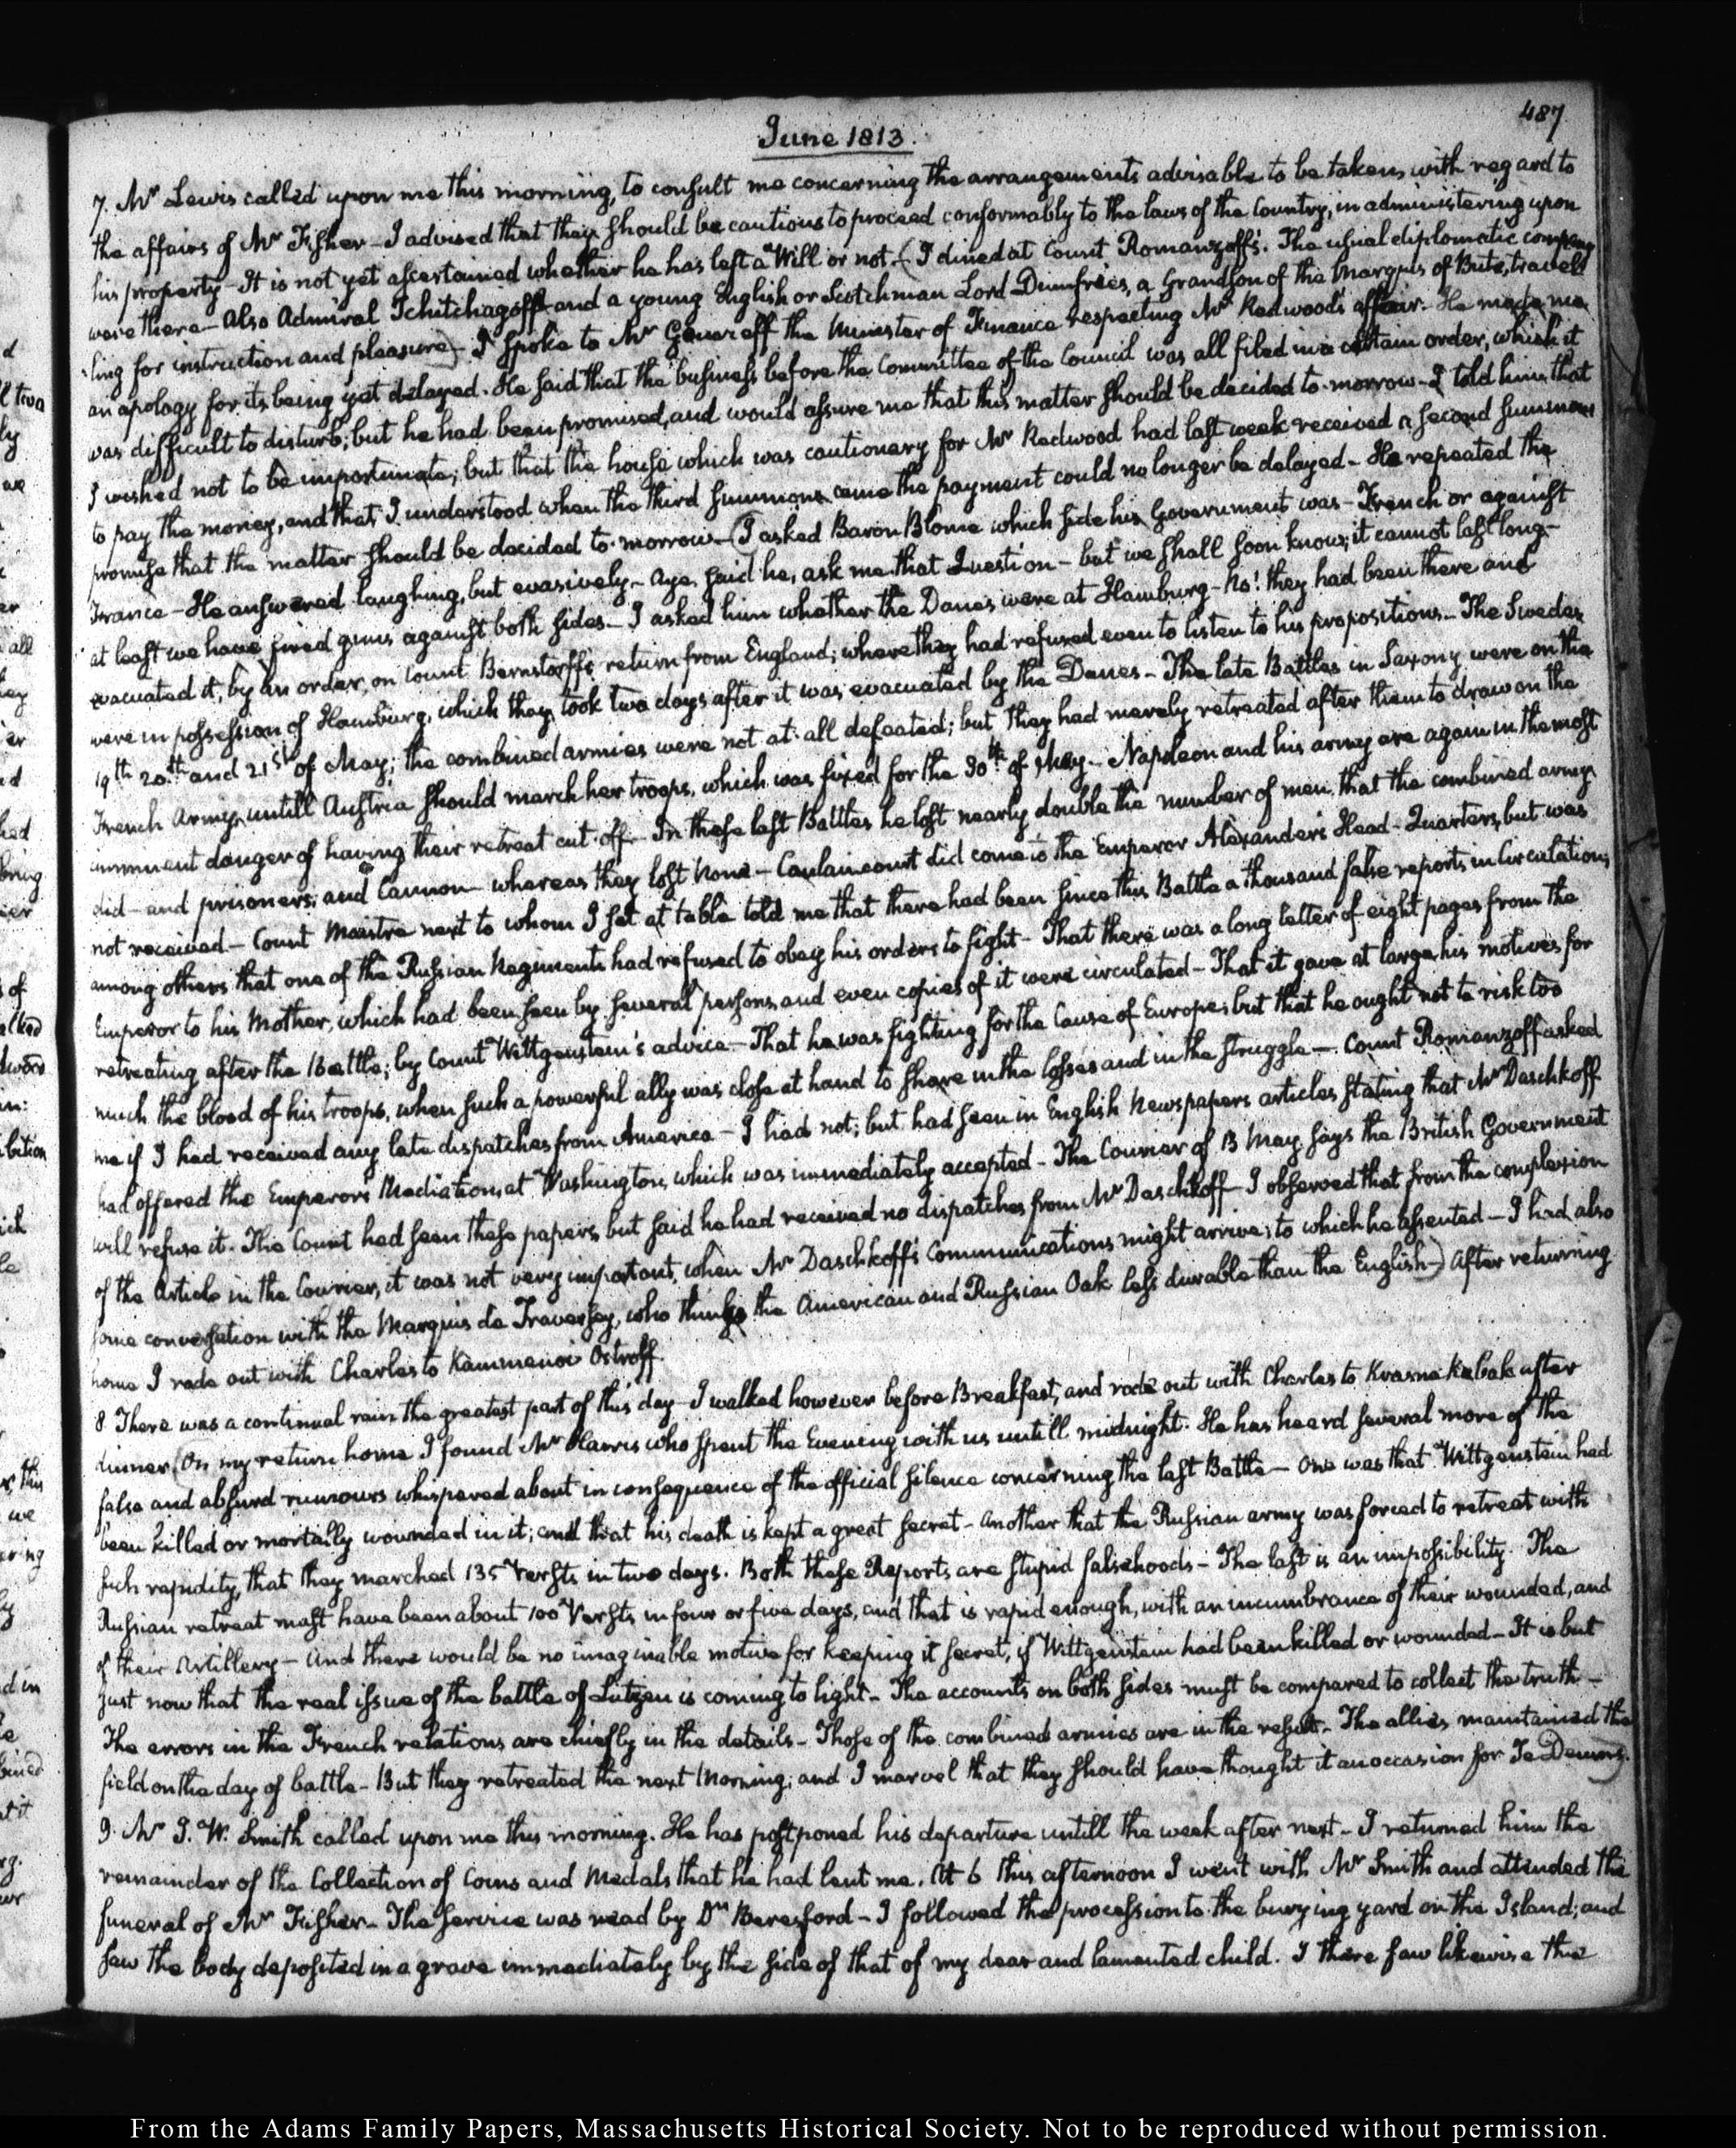 487
June 1813.
7. Mr Lewis called upon me this morning, to consult me concerning the arrangements advisable to be taken with regard to
the affairs of Mr Fisher - I advised that they should be cautious to proceed conformably to the laws of the Country, in administering upon
his property - It is not yet ascertained whether he has left a Will or not. (I dined at Count Romanzoff's. The usual diplomatic company
were there - also Admiral Tchitchagoff and a young English or Scotchman Lord Dumfries, a Grandson of the Marquis of Bute, travell
ling for instruction and pleasure) - I spoke to Mr Gourieff the Minister of Finance respecting Mr Redwood's affair. He made me
an apology for its being yet delayed. He said that the business before the Committee of the Council was all filed in a certain order, which it
was difficult to disturb; but he had been promised, and would assure me that this matter should be decided to-morrow - I told him that
I wished not to be importunate; but that the house which was cautionary for Mr Redwood had last week received a second summons
to pay the money, and that I understood when the third summons came the payment could no longer be delayed - He repeated the
promise that the matter should be decided to-morrow - (I asked Baron Blome which side his Government was - French or against
France - He answered laughing, but evasively - Aye, said he, ask me that Question - but we shall soon know; it cannot last long -
at least we have fired guns against both sides - I asked him whether the Danes were at Hamburg - No! they had been there and
evacuated it, by an order, on Count Bernstorff's return from England; where they had refused even to listen to his propositions - The Swedes
were in possession of Hamburg, which they took two days after it was evacuated by the Danes - The late Battles in Saxony were on the
19th 20th and 21st of May; the combined armies were not at all defeated; but they had merely retreated after them to draw on the
French Army, untill Austria should march her troops, which was fixed for the 30th of May - Napoleon and his army are again in the most
imminent danger of having their retreat cut off - In these last Battles he lost nearly double the number of men, that the combined army
did - and prisoners, and Cannon - whereas they lost None - Caulaincourt did come to the Emperor Alexander's Head-Quarters, but was
not received - Count Maistre next to whom I sat at table told me that there had been since this Battle a thousand false reports in Circulation,
among others that one of the Russian Regiments had refused to obey his orders to fight - That there was a long letter of eight pages from the
Emperor to his Mother, which had been seen by several persons, and even copies of it were circulated - That it gave at large, his motives for
retreating after the Battle; by Count Wittgenstein's advice - That he was fighting for the Cause of Europe; but that he ought not to risk too
much the blood of his troops, when such a powerful ally was close at hand to share in the losses and in the struggle - Count Romanzoff asked
me if I had received any late dispatches from America - I had not; but had seen in English Newspapers articles stating that Mr Daschkoff
had offered the Emperor's Mediation, at Washington, which was immediately accepted - The Courier of 13 May, says the British Government
will refuse it. The Count had seen these papers, but said he had received no dispatches from Mr Daschkoff - I observed that from the complexion
of the Article in the Courier, it was not very important, when Mr Daschkoff's Communications might arrive; to which he assented - I had also
some conversation with the Marquis de Traversay, who thinks the American and Russian Oak less durable than the English -) After returning
home I rode out with Charles to Kammenoi Ostroff.
8. There was a continual rain the greatest part of this day - I walked however before Breakfast, and rode out with Charles to Krasna Kabak after
dinner. (On my return home I found Mr Harris who spent the Evening with us untill midnight. He has heard several more of the
false and absurd rumours whispered about in consequence of the official silence concerning the last Battle - One was that Wittgenstein had
been killed or mortally wounded in it; and that his death is kept a great secret - another that the Russian army was forced to retreat with
such rapidity, that they marched 135 Versts in two days. Both these Reports are stupid falsehoods - The last is an impossibility. The
Russian retreat must have been about 100 Versts in four or five days, and that is rapid enough, with an incumbrance of their wounded, and
of their Artillery - And there would be no imaginable motive for keeping it secret, if Wittgenstein had been killed or wounded - It is but
just now that the real issue of the battle of Lutzen is coming to light - The accounts on both sides must be compared to collect the truth -
The errors in the French relations are chiefly in the details - Those of the combined armies are in the result - The allies maintained the
field on the day of battle - But they retreated the next Morning; and I marvel that they should have thought it an occasion for Te Deums.)
9. Mr J. W. Smith called upon me this morning. He has postponed his departure untill the week after next - I returned him the
remainder of the Collection of Coins and Medals that he had lent me. At 6 this afternoon I went with Mr Smith and attended the
funeral of Mr Fisher - The service was read by Dr Beresford - I followed the procession to the burying yard on the Island; and
saw the body deposited in a grave immediately by the side of that of my dear and lamented child. I there saw likewise the
From the Adams Family Papers, Massachusetts Historical Society. Not to be reproduced without permission.